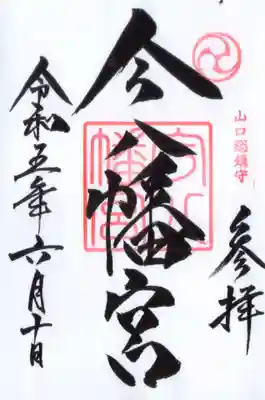 山口総鎮守
参拝
今八幡宮
令和五年六月十日